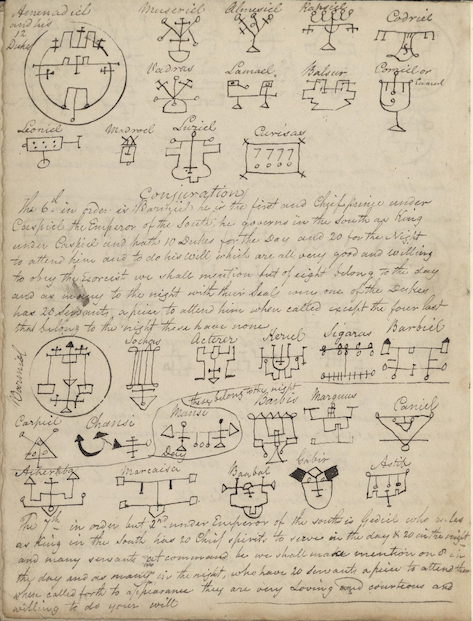 Amenadiel
and his
12
Dukes
Museriel
Almesiel
Rapsiel
Codriel
Vadras
Lamael
Balsur
Curiel or
Leoniel
Madriel
Luziel
Curisas
7777
Conjuration
The 6th in order is Barmiel he is the first and Chief prince under
Caspiel the Emperor of the South, he governs in the South as King
under Caspiel and hath 10 Dukes for the Day and 20 for the Night
to attend him and to do his will which are all very good and willing
to obey the Exorcist we shall mention but of eight belong to the day
and as many to the night with their Seals every one of the Dukes
has 20 servants apiece to attend him when called except the four last
that belong to the night these have none
Barmiel
Sochas
Acterer
Keriel
Sigaras
Barbiel
these belong to the night
Carpiel
Chansi
Manse
Barbis
Marquus
Caniel
Acherba
Marcaisa
Baabal
Gabir
Astib
The 7th in order but 2nd under Emperor of the south is Gediel who rules
as King in the South has 20 Chief spirits to serve in the day & 20 in the night
and many servants at command he we shall make mention on 8 in
the day and as many in the night, who have 20 servants apiece to attend them
when called forth to appearance they are very Loving and courteous and
willing to do your will